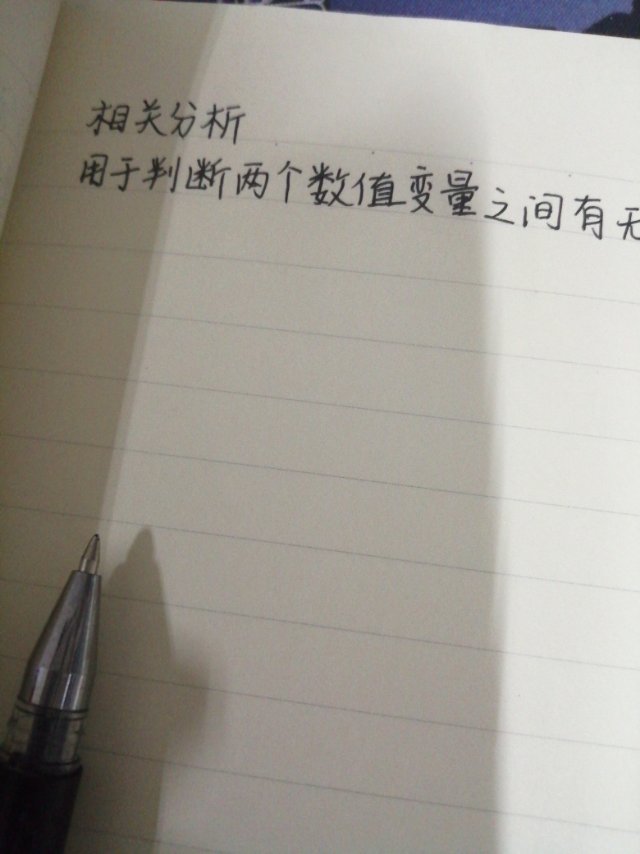 相关分析
用于判断两个数值变量之间有无